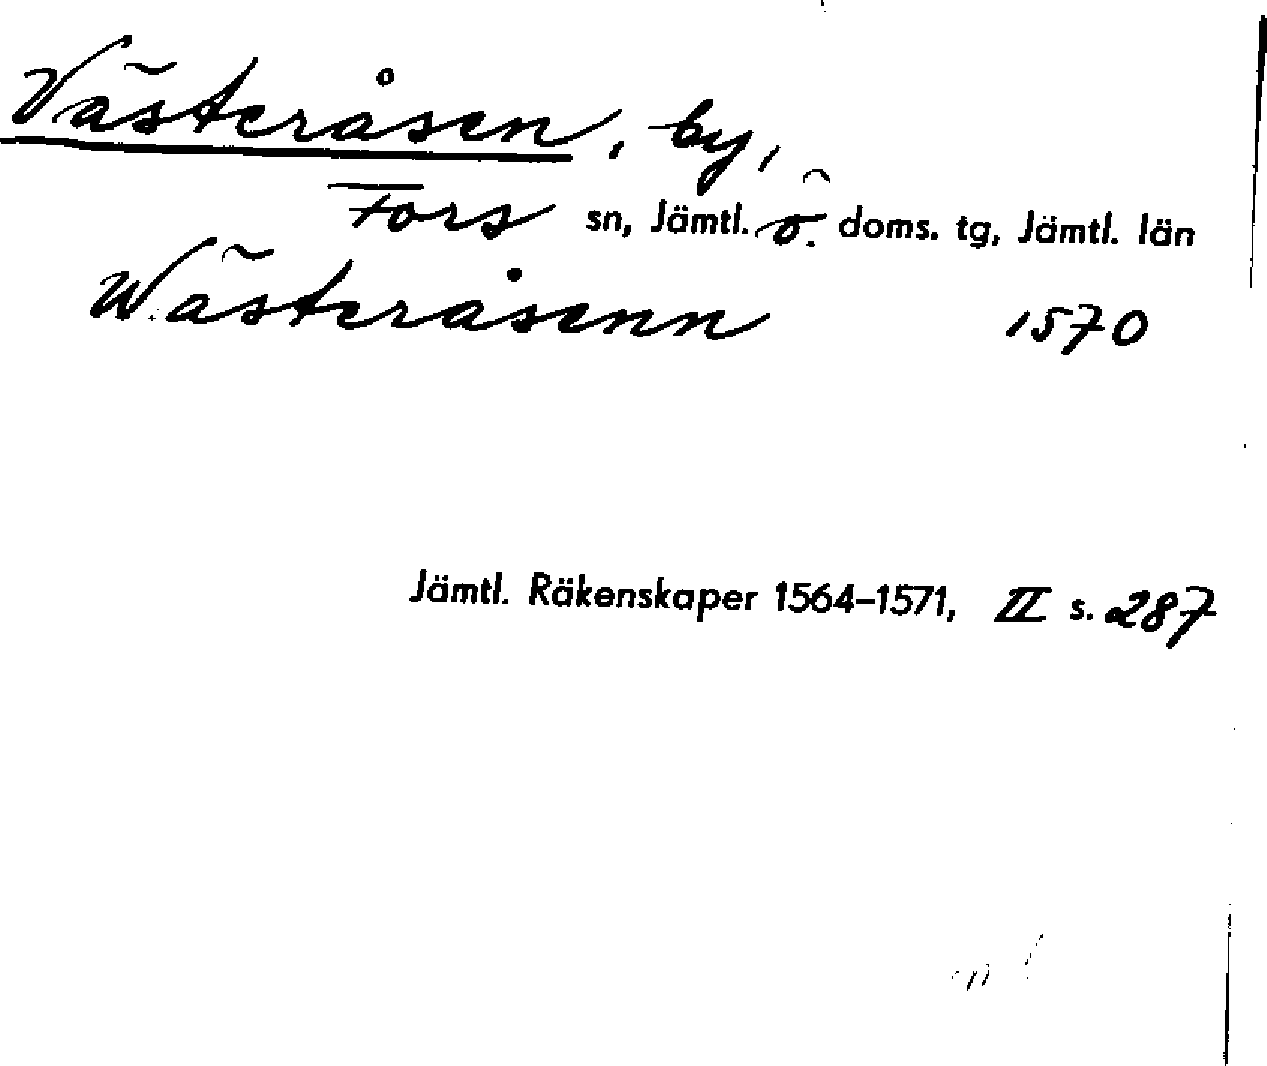 Västeråsen, by,
Fors sn, Jämtl. ö. doms. tg, Jämtl. län
Wästeråsenn 1570
Jämtl. Räkenskaper 1564-1571, II s. 287